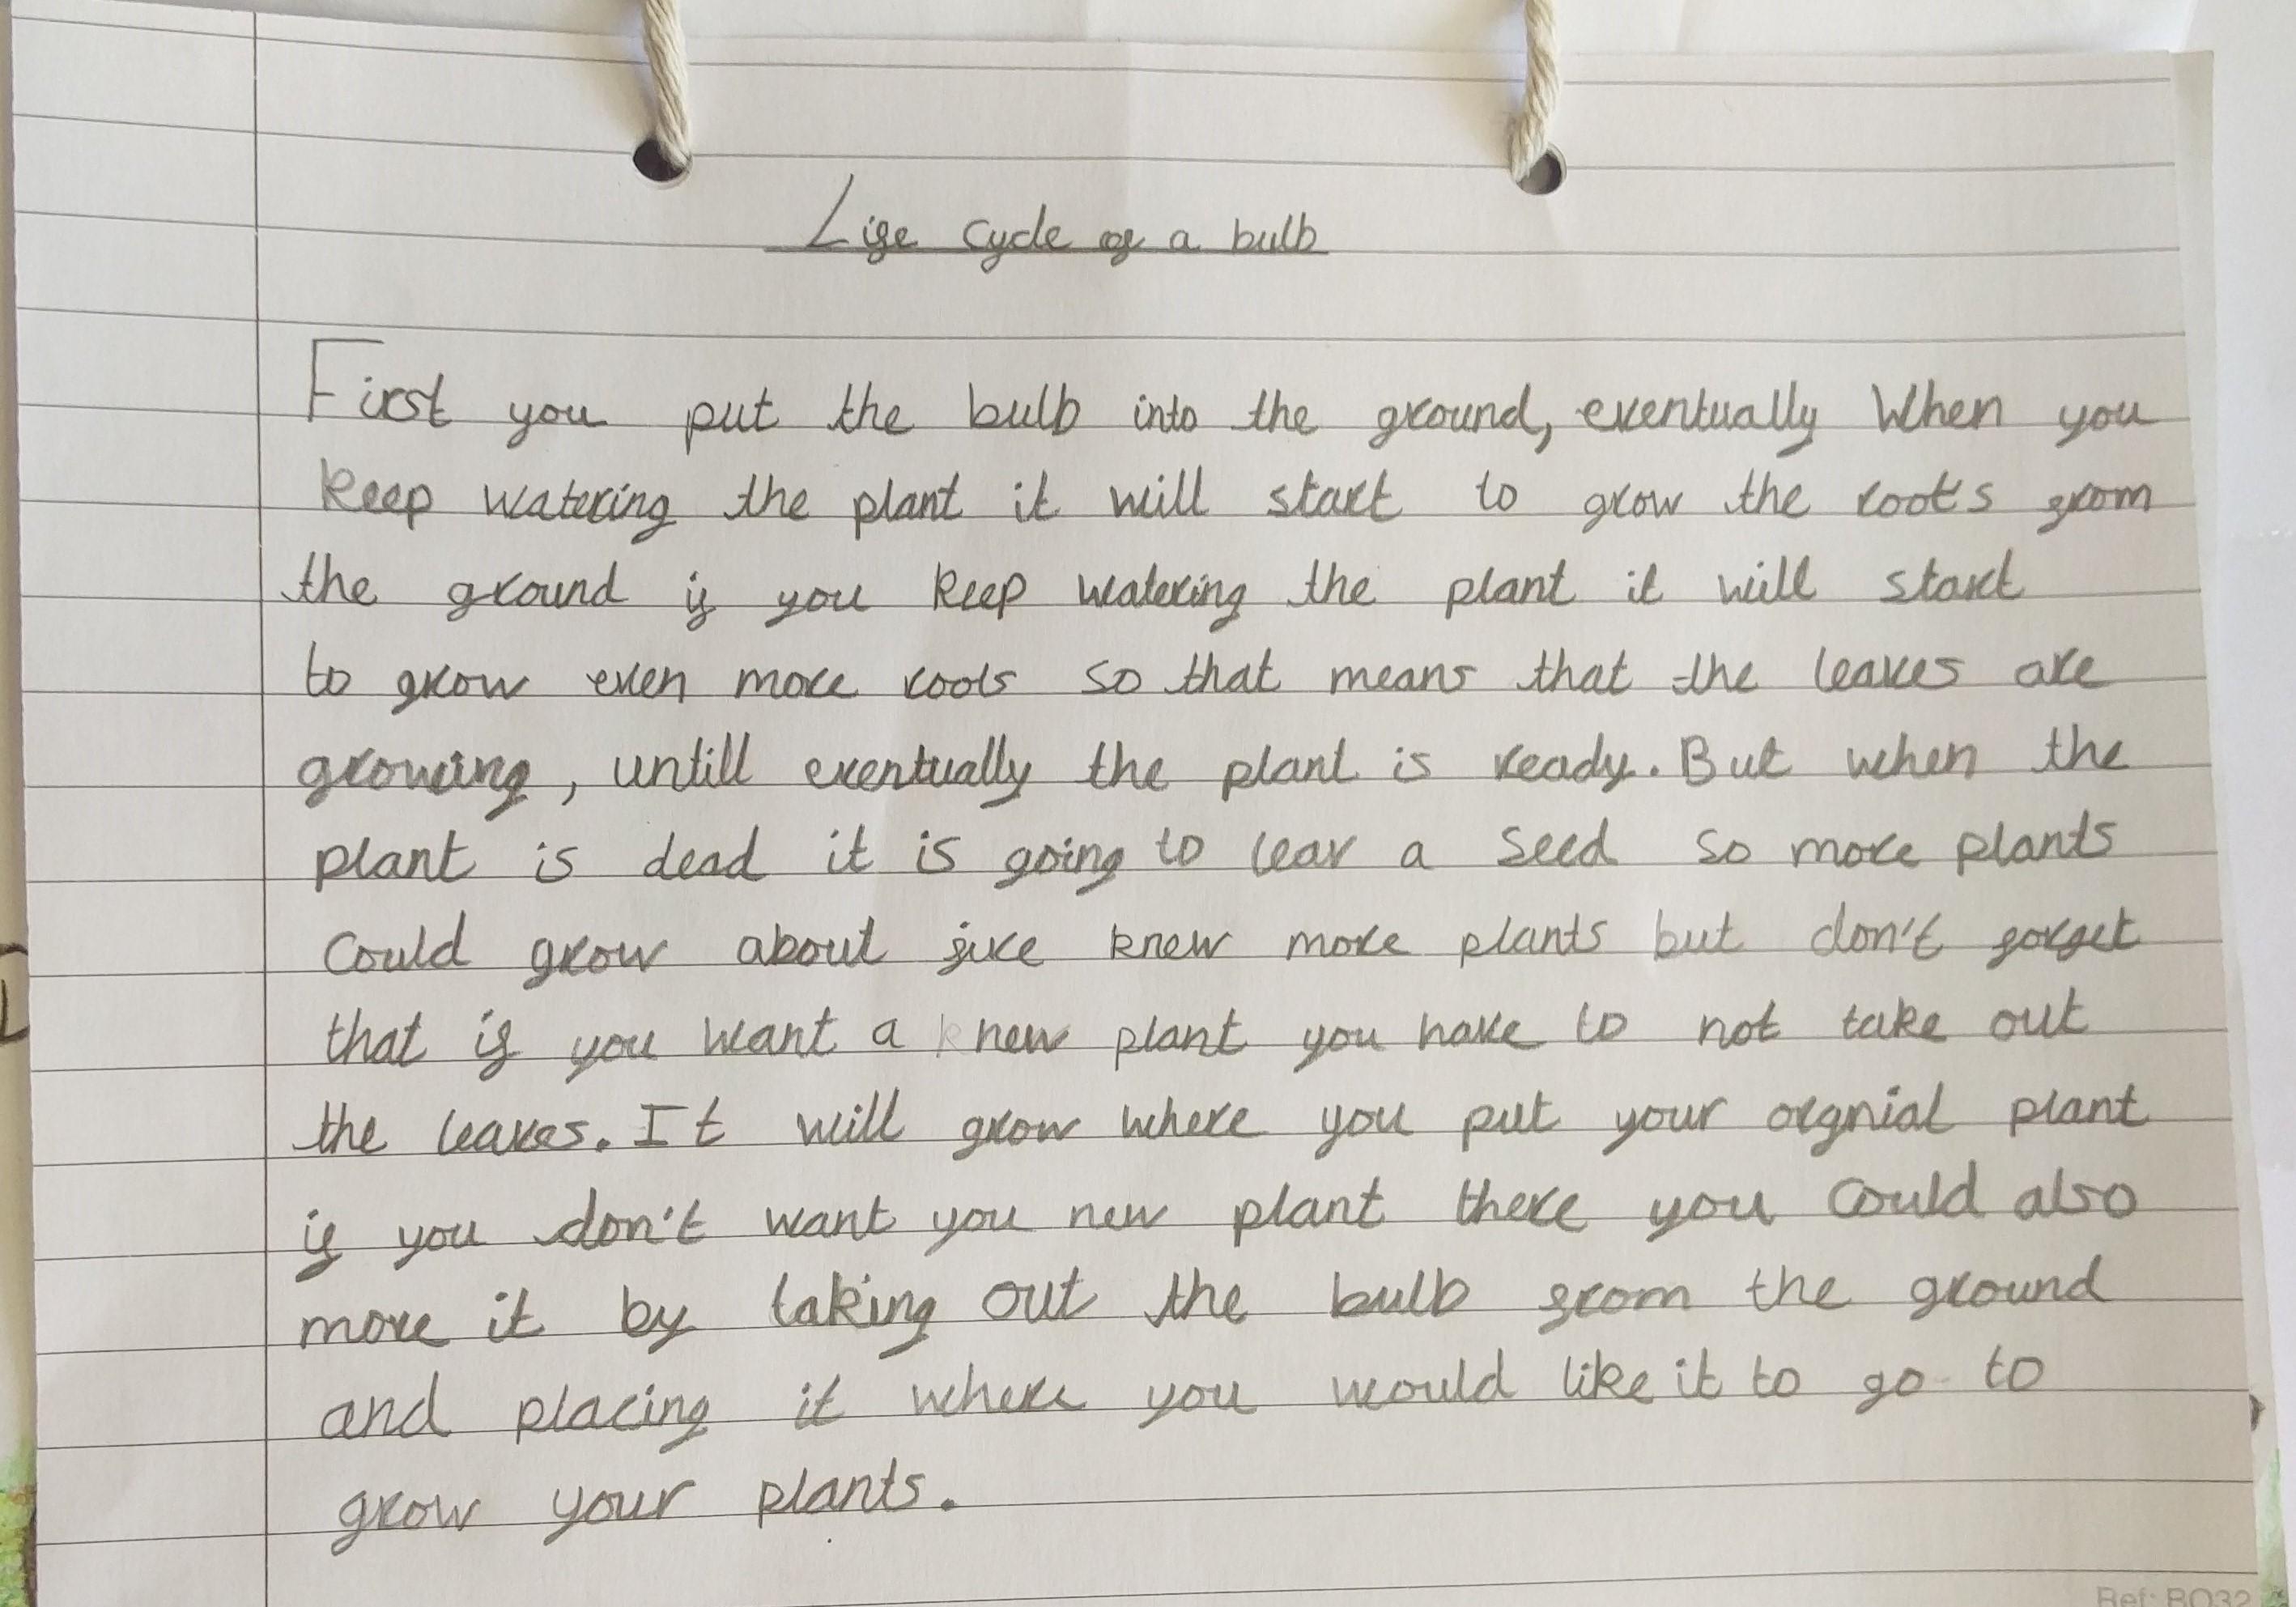 Life cycle of a bulb
First you put the bulb into the ground, eventually When you
keep watering the plant it will start to grow the roots from
the ground if you keep watering the plant it will start
to grow even more roots so that means that the leaves are
growing, untill eventually the plant is ready. But when the
plant is dead it is going to leav a seed so more plants
Could grow about five knew more plants but don't forget
that if you want a knew plant you have to not take out
the leaves. It will grow where you put your orgnial plant
if you don't want you new plant there you could also
move it by taking out the bulb from the ground
and placing it where you would like it to go to
grow your plants.
Ref: BO32